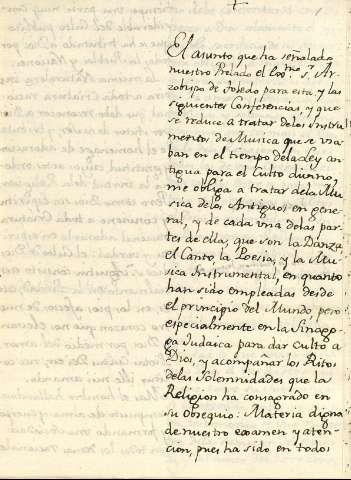 El asunto que ha señalado
nuestro Prelado el Exc.mo S. Ar-
zobispo de Toledo para esta, y las
siguientes Conferencias, y que
se reduce a tratar delos Instru-
mentos de Musica que se usa-
ban en el tiempo dela ley an-
tigua para el Culto divino,
me obliga a tratar dela Mu-
sica delos Antiguos en gene-
ral, y de cada una delas par-
tes de ella, que son la Danza,
el Canto, la Poesia, y la Mu-
sica Instrumental, en quanto
han sido empleadas desde
el principio del Mundo, pero
especialmente en la Sinago-
ga Judaica para dar culto a
Dios, y acompañar los Ritos
delas Solemnidades que la
Religion ha consagrado en
su Obsequio: Materia digna
de nuestro examen y aten-
cion, pues ha sido en todos